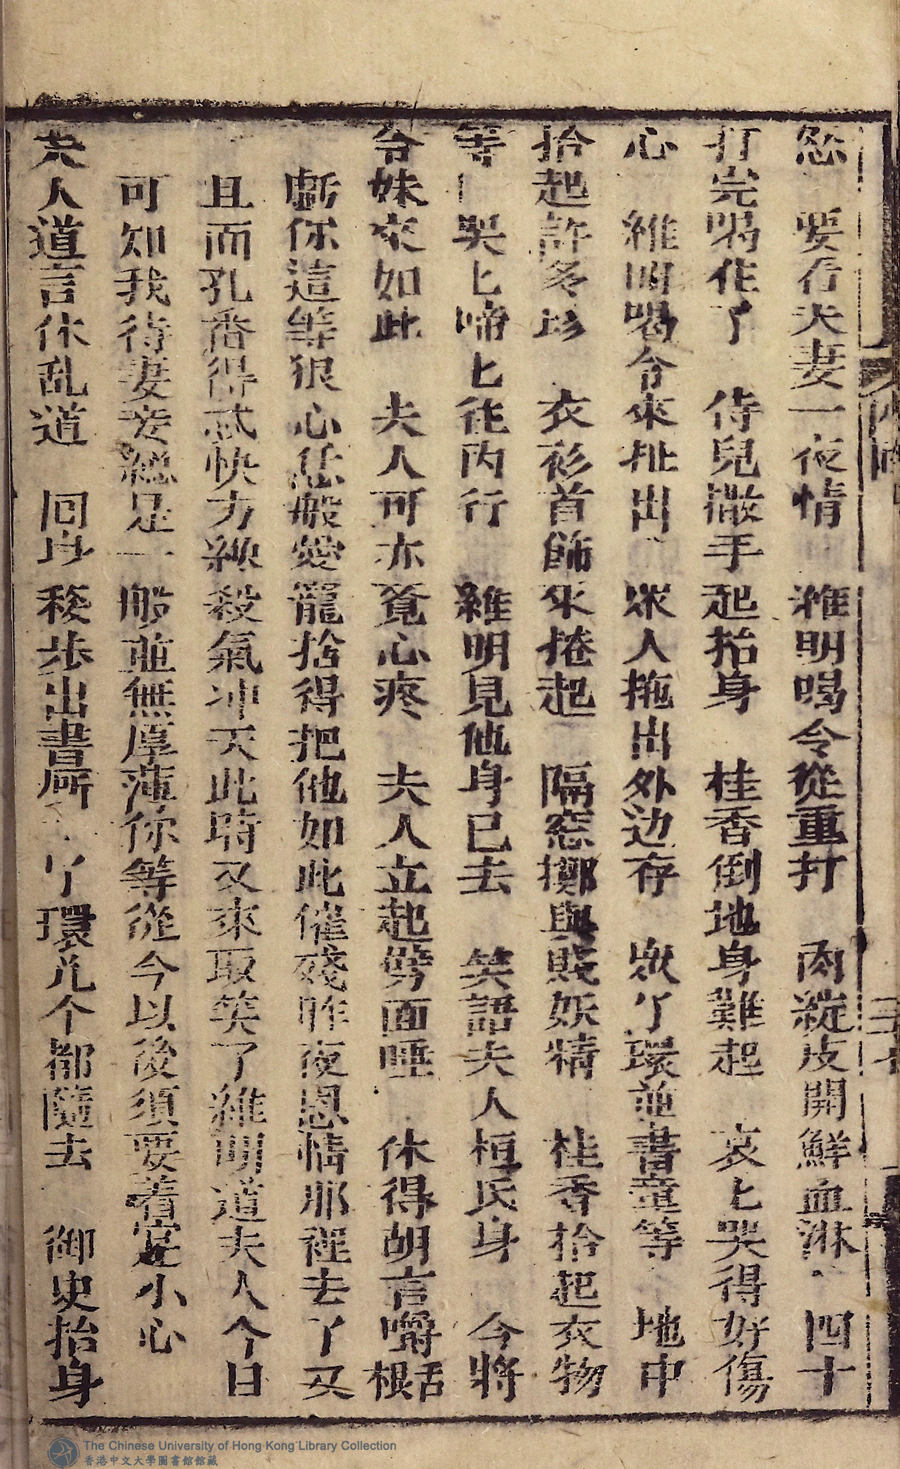 愆　要看夫妻一夜情　維明喝令從重打　肉綻皮開鮮血淋　四十
打完喝住了　侍兒撒手起抬身　桂香倒地身難起　哀匕哭得好傷
心　維明喝令來扯出　眾人拖出外边存　眾丫環並書童等　地中
拾起許多珍　衣衫首飾來捲起　隔窓擲與賤妖精　桂香拾起衣物
等　哭匕啼匕往內行　維明見他身已去　笑語夫人桓氏身　今將
令妹來如此　夫人可亦覓心疼　夫人立起劈面唾　休得胡言嚼舌根
虧你這等狠心恁般愛寵捨得把他如此催殘昨夜恩情那裡去了又
且而孔香得忒快方纔殺氣冲天此時又來取笑了維明道夫人今日
可知我待妻妾総是一般並無厚薄你等從今以後須要着寔小心
夫人道言休乱道　回身移步出書房　丫環几个都隨去　御史抬身
The Chinese University of Hong Kong Library Collection
香港中文大學圖書館館藏